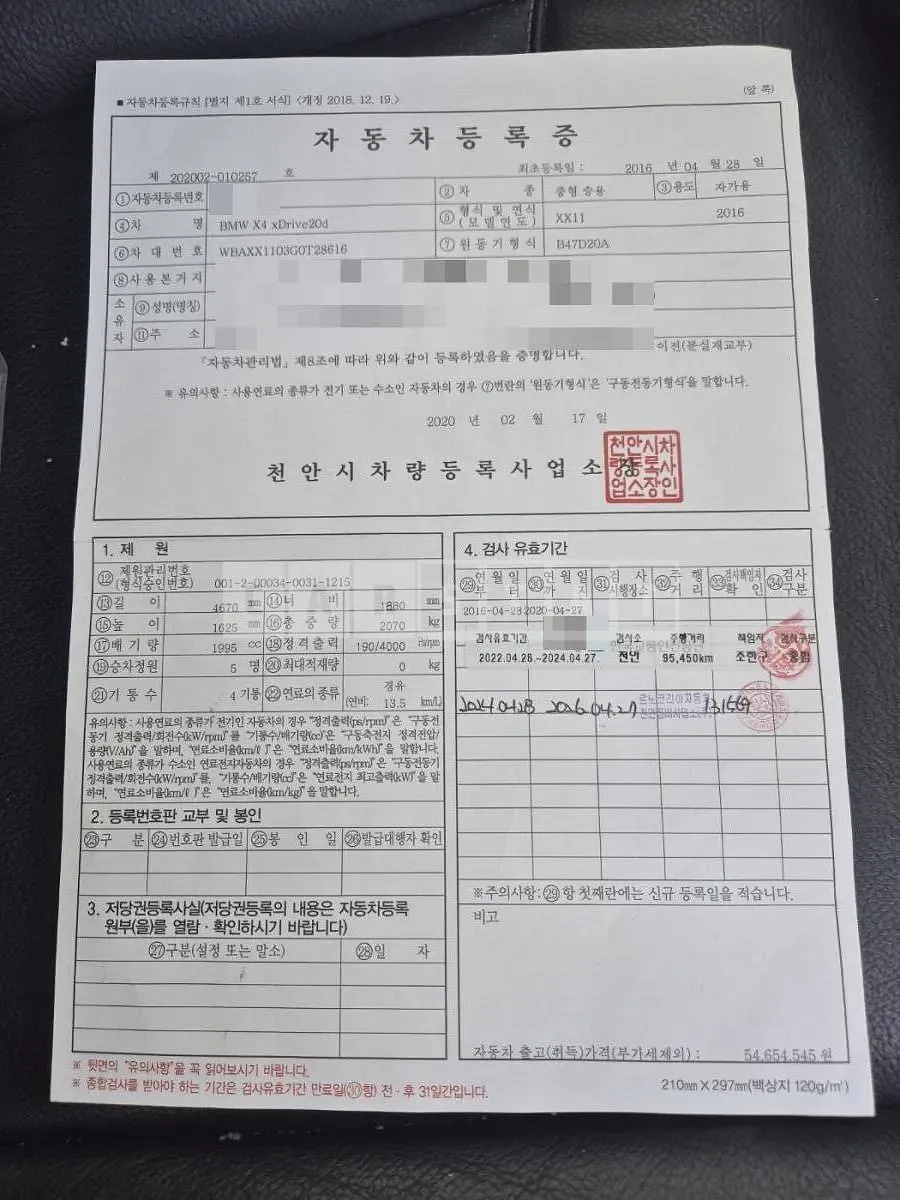 ■ 자동차등록규칙 [별지 제1호 서식] <개정 2018. 12. 19.>
(앞 쪽)
자동차등록증
제 202002-010257 호
최초등록일 : 2016 년 04 월 28 일
①자동차등록번호 ②차 종 중형 승용 ③용도 자가용
④차 명 BMW X4 xDrive20d ⑤형식 및 연식(모델연도) XX11 2016
⑥차 대 번 호 WBAXX1103G0T28616 ⑦원 동 기 형 식 B47D20A
⑧사 용 본 거 지
소유자 ⑨성명(명칭)
⑪주 소
이전(분실재교부)
「자동차관리법」 제8조에 따라 위와 같이 등록하였음을 증명합니다.
※ 유의사항 : 사용연료의 종류가 전기 또는 수소인 자동차의 경우 ⑦번란의 '원동기형식'은 '구동전동기형식'을 말합니다.
2020 년 02 월 17 일
천안시차량등록사업소장
천안시차
량등록사
업소장인
1. 제 원
⑫ 제원관리번호
(형식승인번호) 001-2-00034-0031-1215
⑬길 이 4670 mm ⑭너 비 1880 mm
⑮높 이 1625 mm ⑯총 중 량 2070 kg
⑰배 기 량 1995 cc ⑱정격출력 190/4000 Ps/rpm
⑲승차정원 5 명 ⑳최대적재량 0 kg
㉑기 통 수 4 기통 ㉒연료의 종류 경유
(연비: 13.5 km/L)
유의사항 : 사용연료의 종류가 전기인 자동차의 경우 "정격출력(ps/rpm)"은 "구동전
동기 정격출력/회전수(kW/rpm)"를 "기통수/배기량(cc)"은 "구동축전지 정격전압/
용량(V/Ah)"을 말하며, "연료소비율(km/ℓ)"은 "연료소비율(km/kWh)"을 말합니다.
사용연료의 종류가 수소인 연료전지자동차의 경우 "정격출력(ps/rpm)"은 "구동전동기
정격출력/회전수(kW/rpm)"를, "기통수/배기량(cc)"은 "연료전지 최고출력(kW)"을 말
하며, "연료소비율(km/ℓ)"은 "연료소비율(km/kg)"을 말합니다.
2. 등록번호판 교부 및 봉인
㉓구 분 ㉔번호판 발급일 ㉕봉 인 일 ㉖발급대행자 확인
3. 저당권등록사실(저당권등록의 내용은 자동차등록
원부(을)를 열람ㆍ확인하시기 바랍니다)
㉗구분(설정 또는 말소) ㉘일 자
4. 검사 유효기간
㉙연 월 일 부 터 ㉚연 월 일 까 지 ㉛검 사 시행장소 ㉜주 행 거 리 ㉝검사책임자 확 인 ㉞검사 구분
2016-04-28 2020-04-27
검사유효기간 검사소 주행거리 책임자 검사구분
2022.04.28.~2024.04.27. 천안 95,450km 조한구 종합
2024.04.28 2026.04.27 르노코리아자동차 131569
※주의사항:㉙항 첫째란에는 신규 등록일을 적습니다.
비고
자동차 출고(취득)가격(부가세제외) : 54,654,545 원
※ 뒷면의 "유의사항"을 꼭 읽어보시기 바랍니다.
※ 종합검사를 받아야 하는 기간은 검사유효기간 만료일(㉚항) 전ㆍ후 31일간입니다.
210mm×297mm(백상지 120g/㎡)